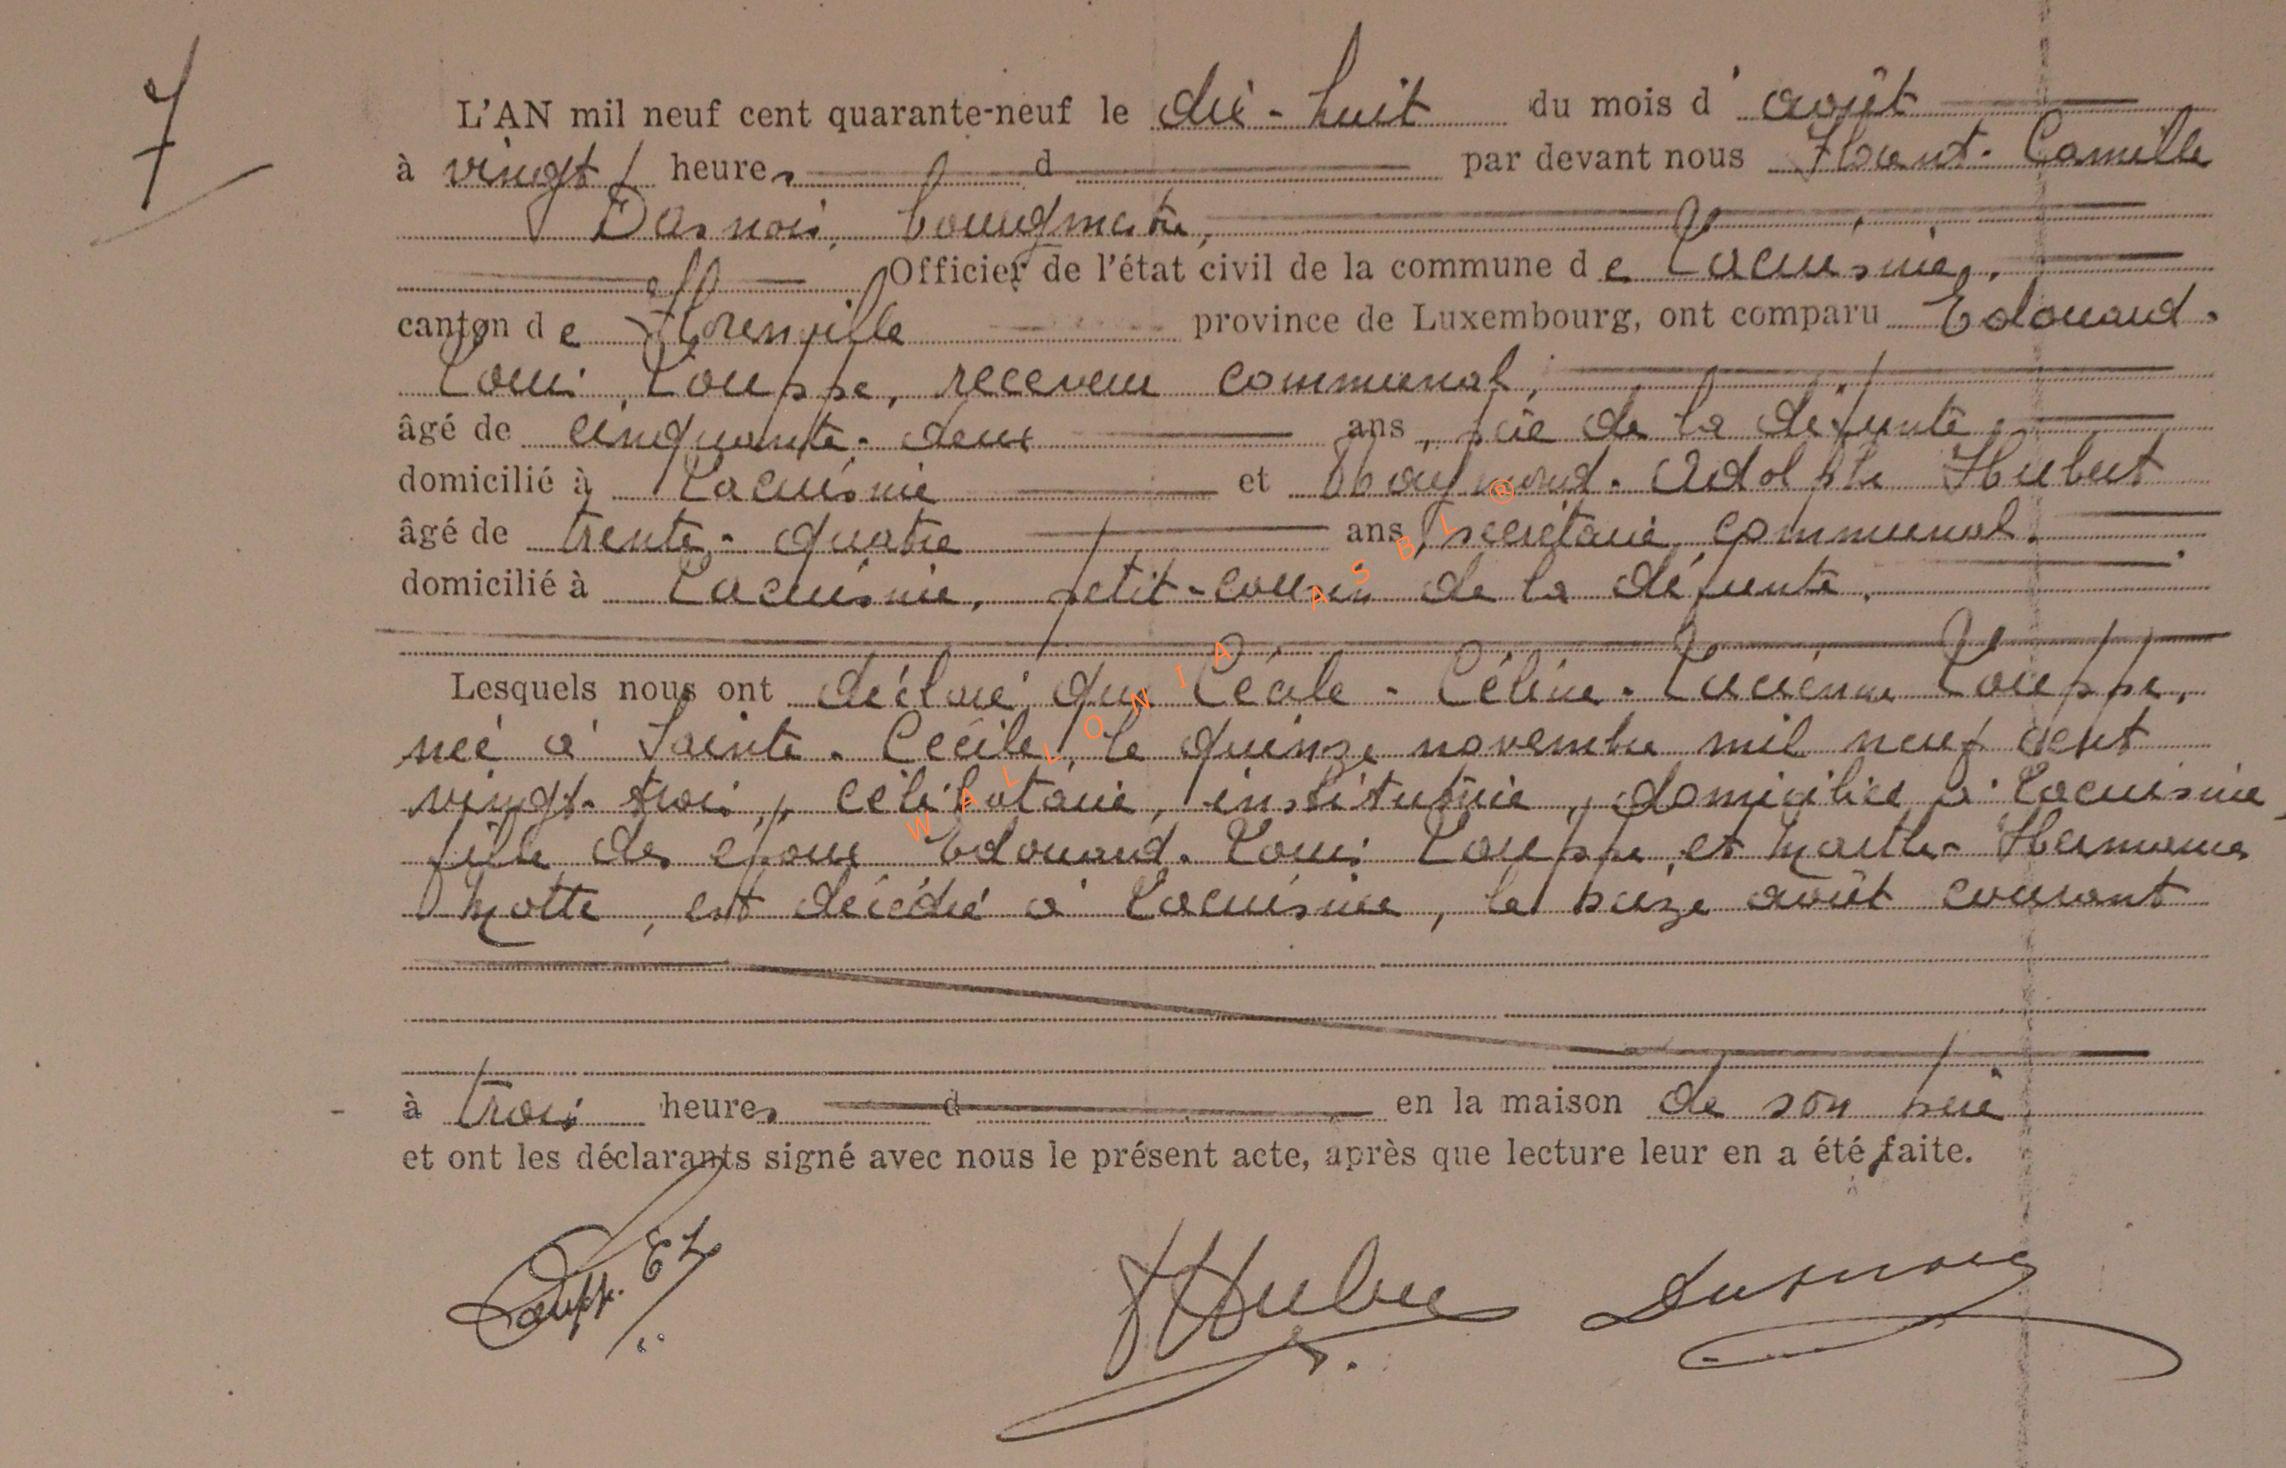 7
L'AN mil neuf cent quarante-neuf le dix-huit du mois d'août
à vingt heures d par devant nous Florent-Camille
Dasnois, bourgmestre,
Officier de l'état civil de la commune de Lacuisine,
canton de Florenville province de Luxembourg, ont comparu Edouard-
Louis Louppe, receveur communal,
âgé de cinquante-deux ans, père de la défunte,
domicilié à Lacuisine et Raymond-Adolphe Hubert
âgé de trente-quatre ans, secrétaire communal.
domicilié à Lacuisine, petit-cousin de la défunte.
Lesquels nous ont déclaré que Cécile-Céline-Lucienne Louppe,
née à Sainte-Cécile, le quinze novembre mil neuf cent
vingt-trois, célibataire, institutrice, domiciliée à Lacuisine,
fille des époux Edouard-Louis Louppe et Marthe-Hermance
Motte, est décédée à Lacuisine, le seize août courant
à trois heures d en la maison de son père
et ont les déclarants signé avec nous le présent acte, après que lecture leur en a été faite.
Louppe. EL Hubert Dasnois
WALLONIA ASBL ®